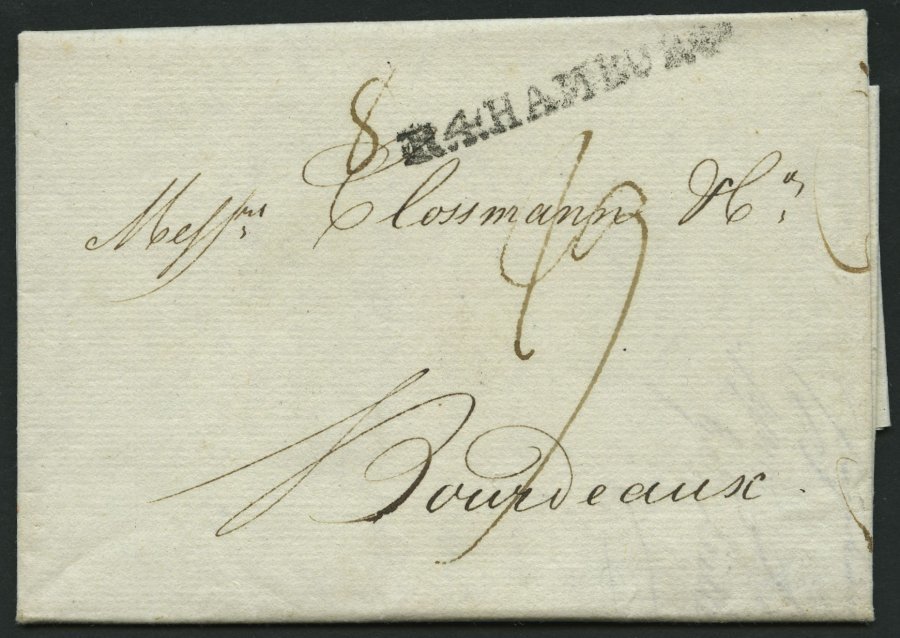 R.4.HAMBURG
8
Messrs. Clossmann
Bourdeaux